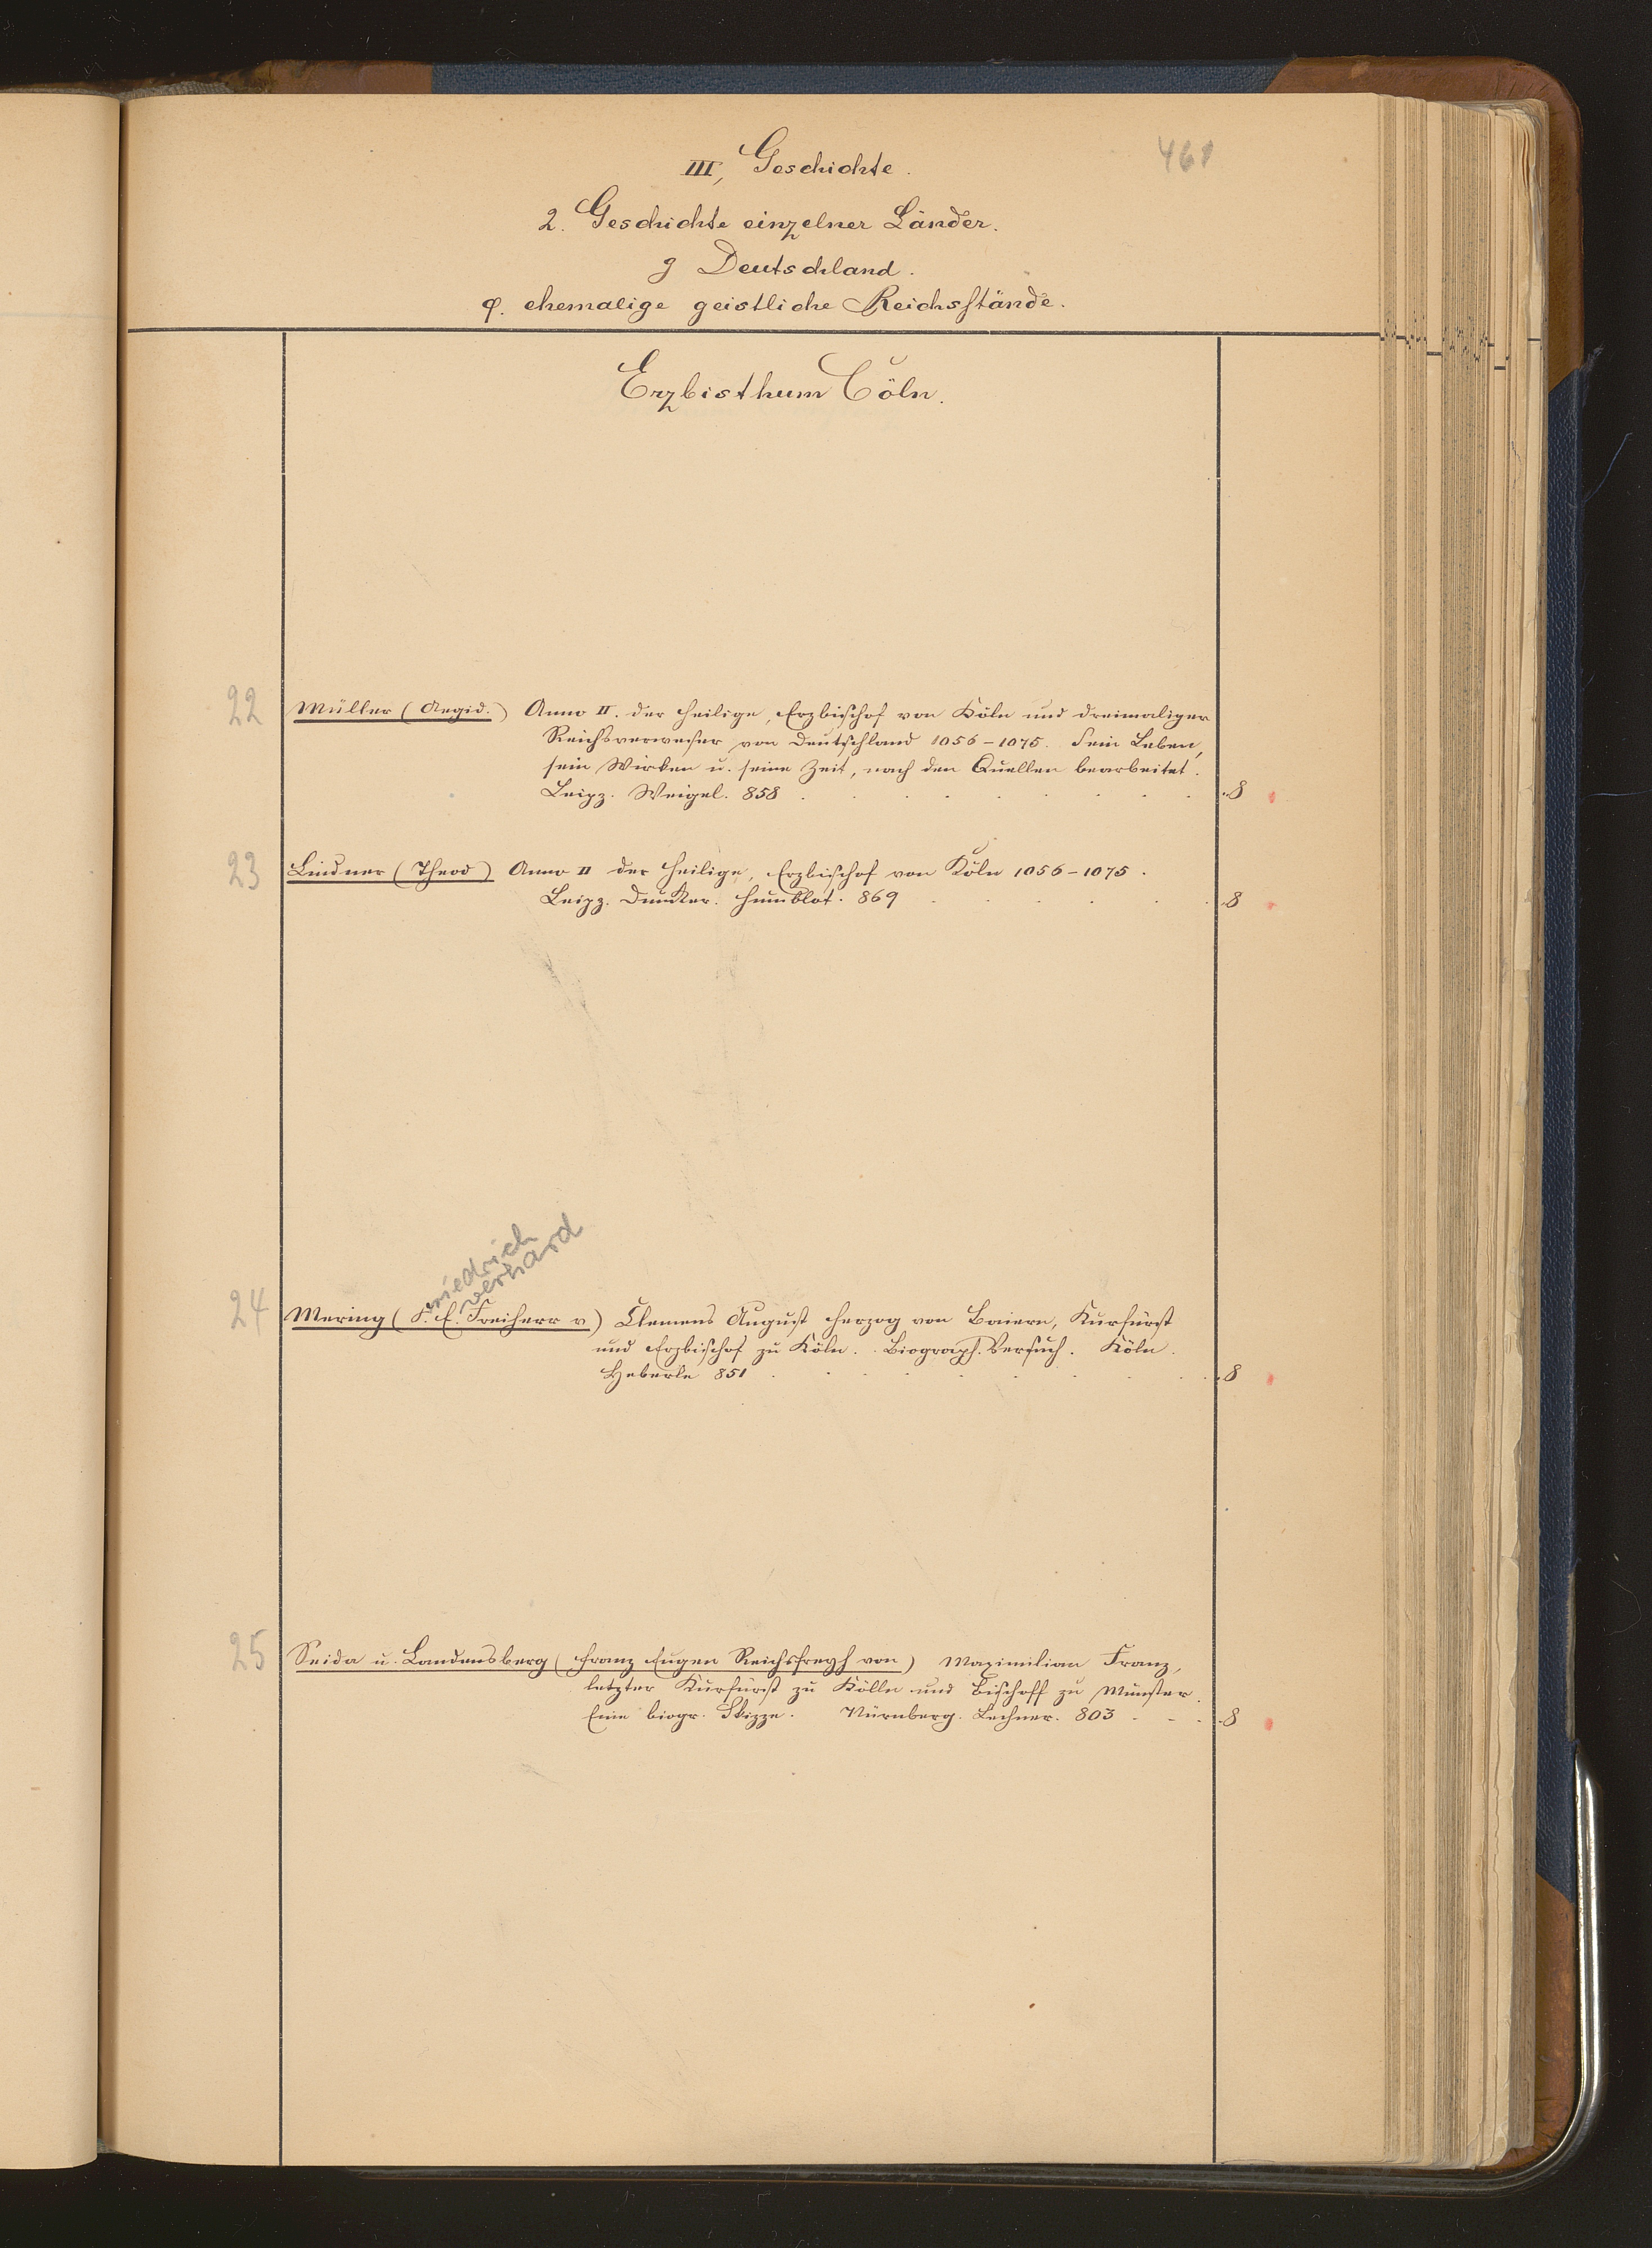 461
III, Geschichte.
2. Geschichte einzelner Länder.
g Deutschland.
φ. ehemalige geistliche Reichsstände.
Erzbisthum Cöln.
22 Müller (Aegid.) Anno II. der heilige, Erzbischof von Köln und dreimaliger
Reichsverweser von Deutschland 1056-1075. Sein Leben,
sein Wirken u. seine Zeit, nach den Quellen bearbeitet.
Leipz. Weigel. 858 . . . . . . . . 8
23 Lindner (Theod) Anno II der heilige, Erzbischof von Köln 1056-1075.
Leipz. Duncker. Humblot. 869 . . . . . 8
riedrich
verhard
24 Mering (F. E. Freiherr v) Clemens August Herzog von Baiern, Kurfürst
und Erzbischof zu Köln. Biograph. Versuch. Köln.
Heberle 851 . . . . . . . 8
25 Seida u. Landensberg (Franz Eugen Reichsfreyh von) Maximilian Franz,
letzter Kurfürst zu Kölln und Bischoff zu Münster.
Eine biogr. Skizze. Nürnberg. Lechner. 803 . . . 8